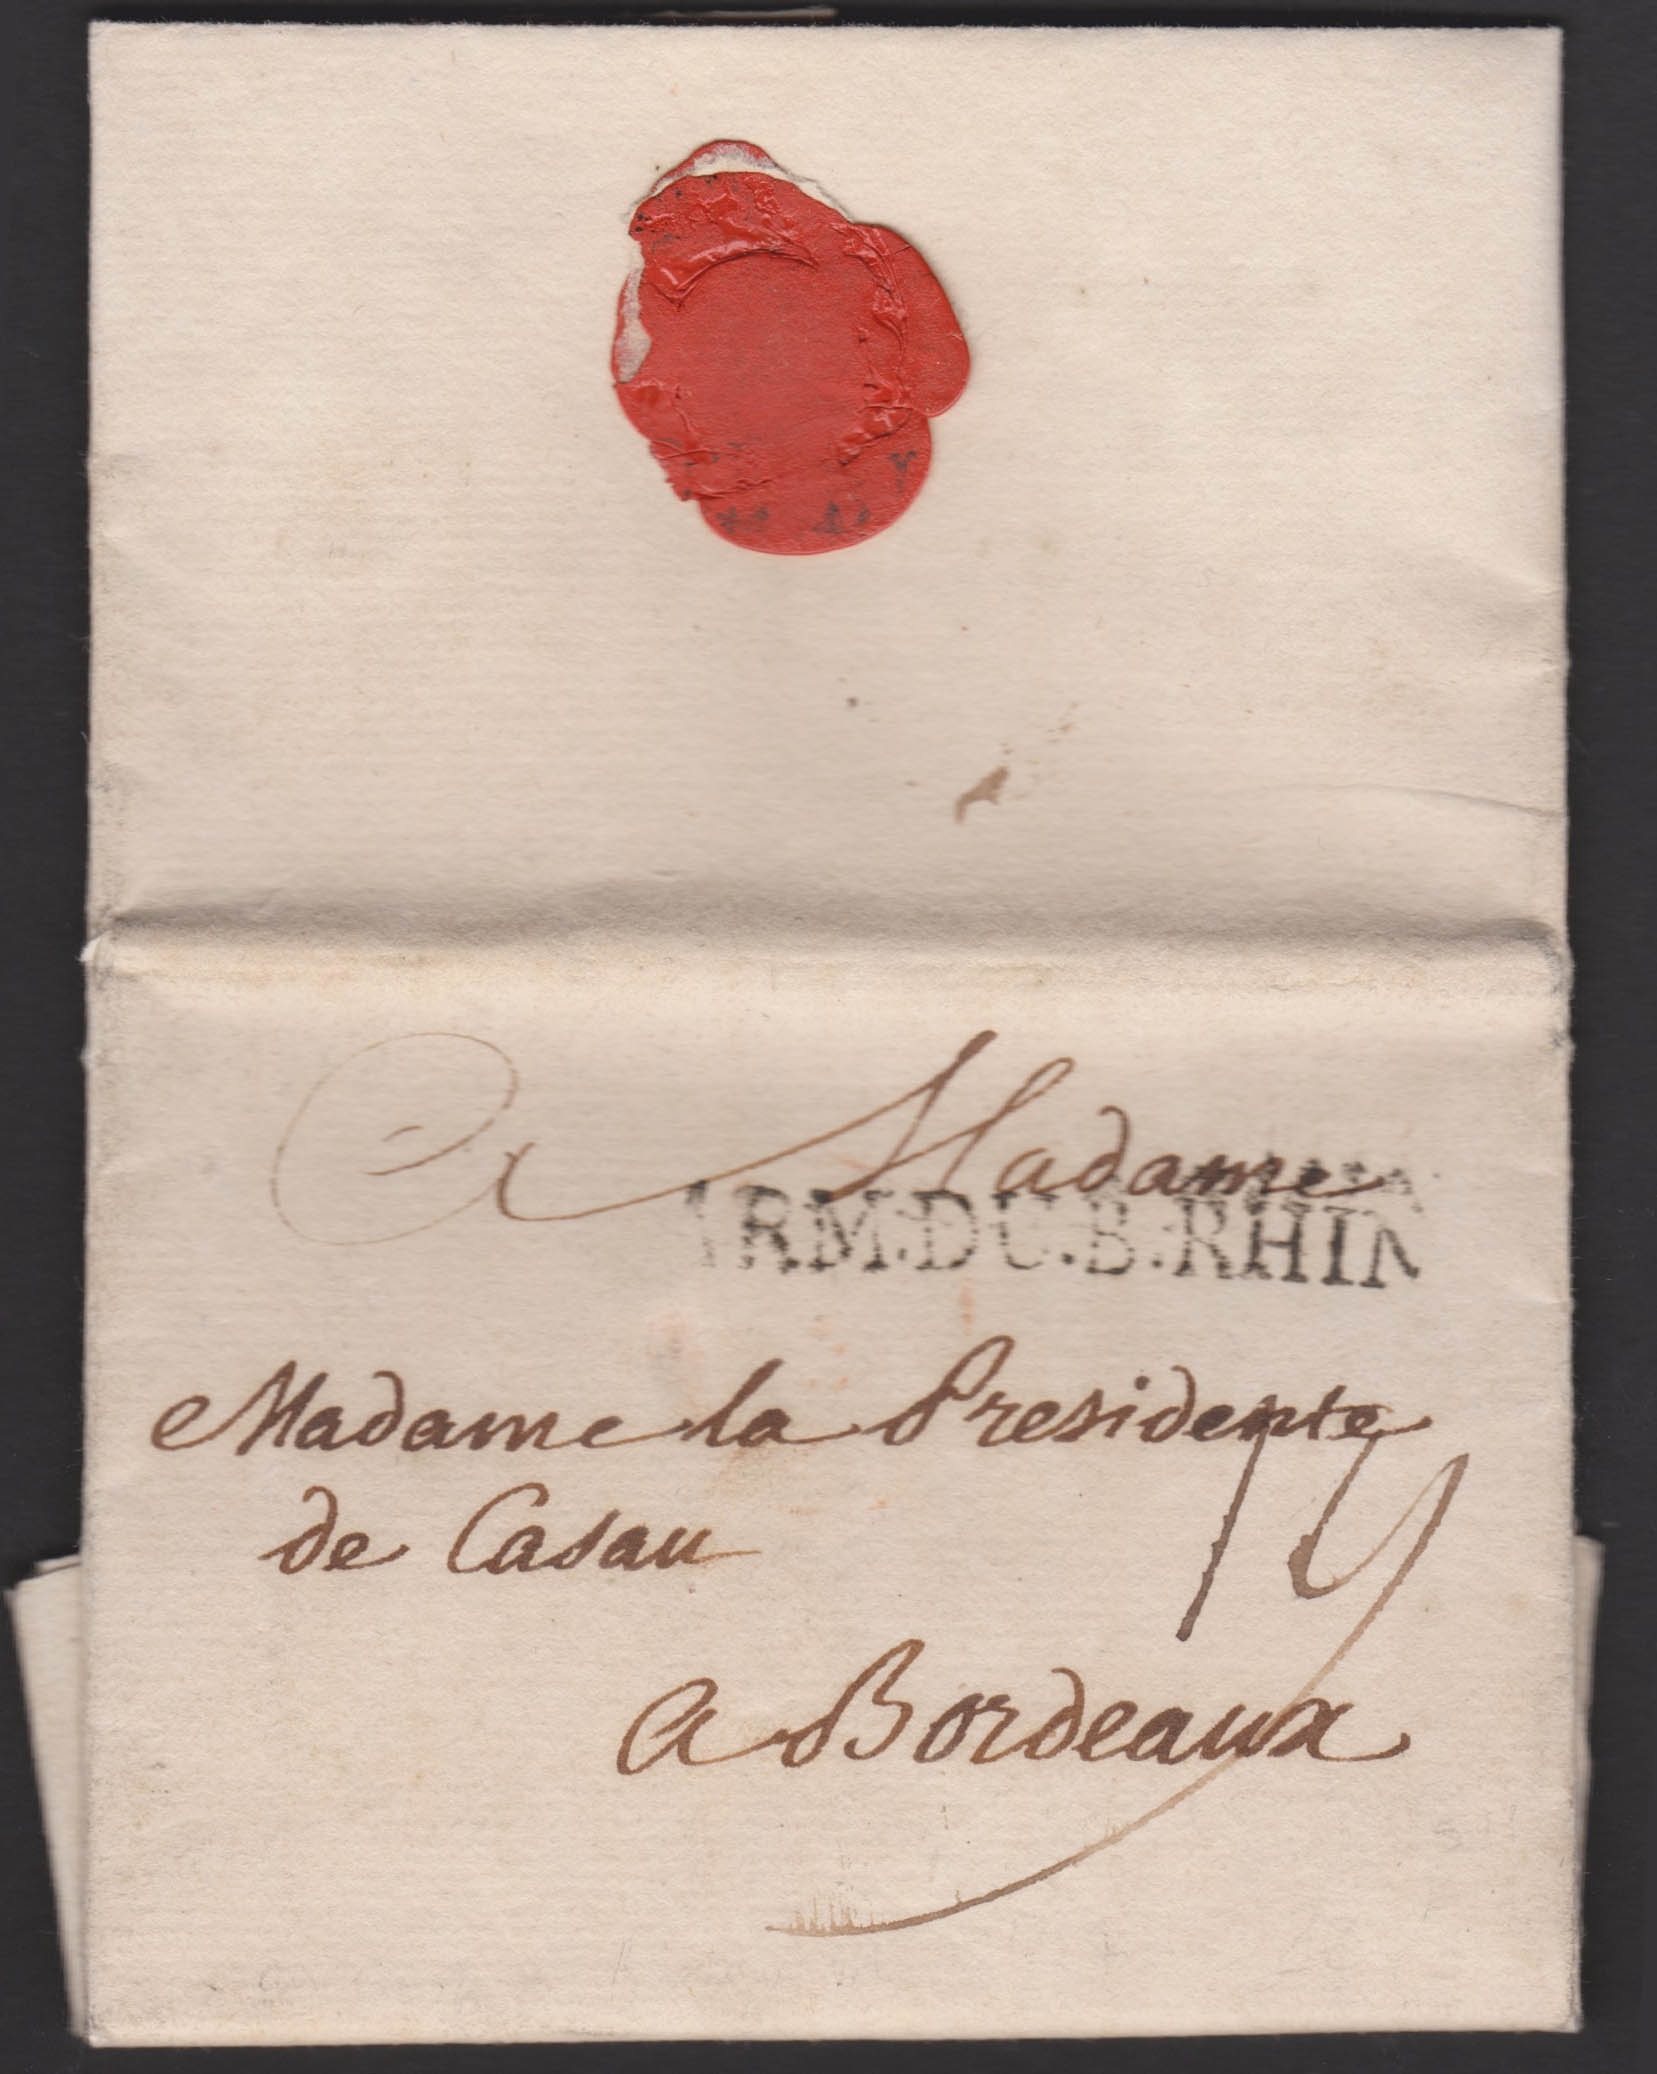 A Madame
ARM.DU.B.RHIN
Madame la Presidente
de Casau
19
a Bordeaux